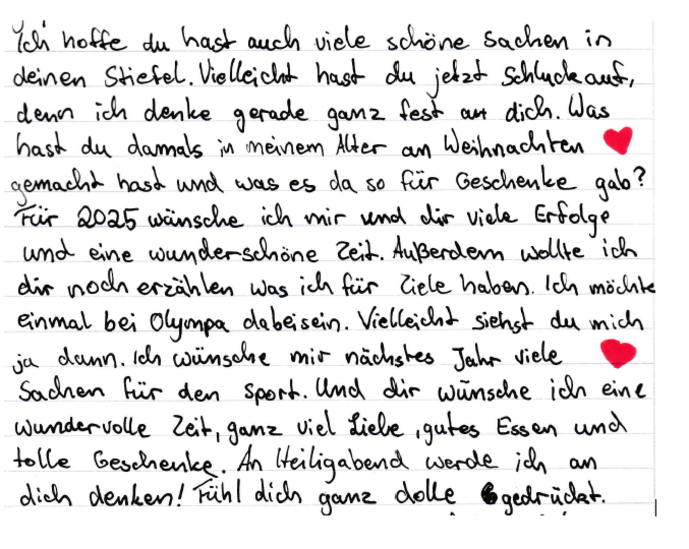 Ich hoffe du hast auch viele schöne Sachen in
deinen Stiefel. Vielleicht hast du jetzt Schluckauf,
denn ich denke gerade ganz fest an dich. Was
hast du damals in meinem Alter an Weihnachten
gemacht hast und was es da so für Geschenke gab?
Für 2025 wünsche ich mir und dir viele Erfolge
und eine wunderschöne Zeit. Außerdem wollte ich
dir noch erzählen was ich für Ziele haben. Ich möchte
einmal bei Olympa dabeisein. Vielleicht siehst du mich
ja dann. Ich wünsche mir nächstes Jahr viele
Sachen für den Sport. Und dir wünsche ich eine
wundervolle Zeit, ganz viel Liebe, gutes Essen und
tolle Geschenke. An Heiligabend werde ich an
dich denken! Fühl dich ganz dolle gedrückt.